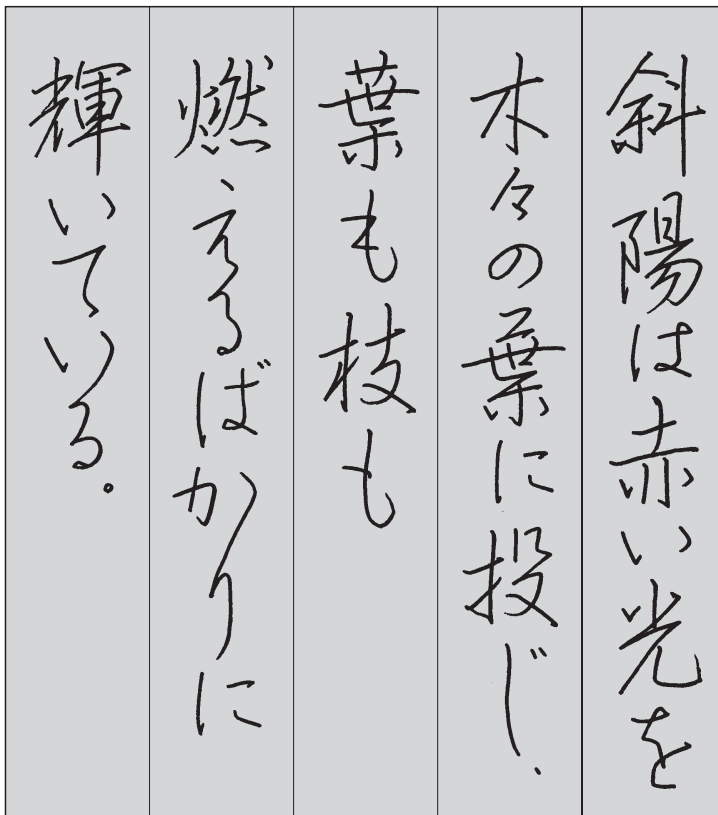 斜陽は赤い光を
木々の葉に投じ、
葉も枝も
燃えるばかりに
輝いている。